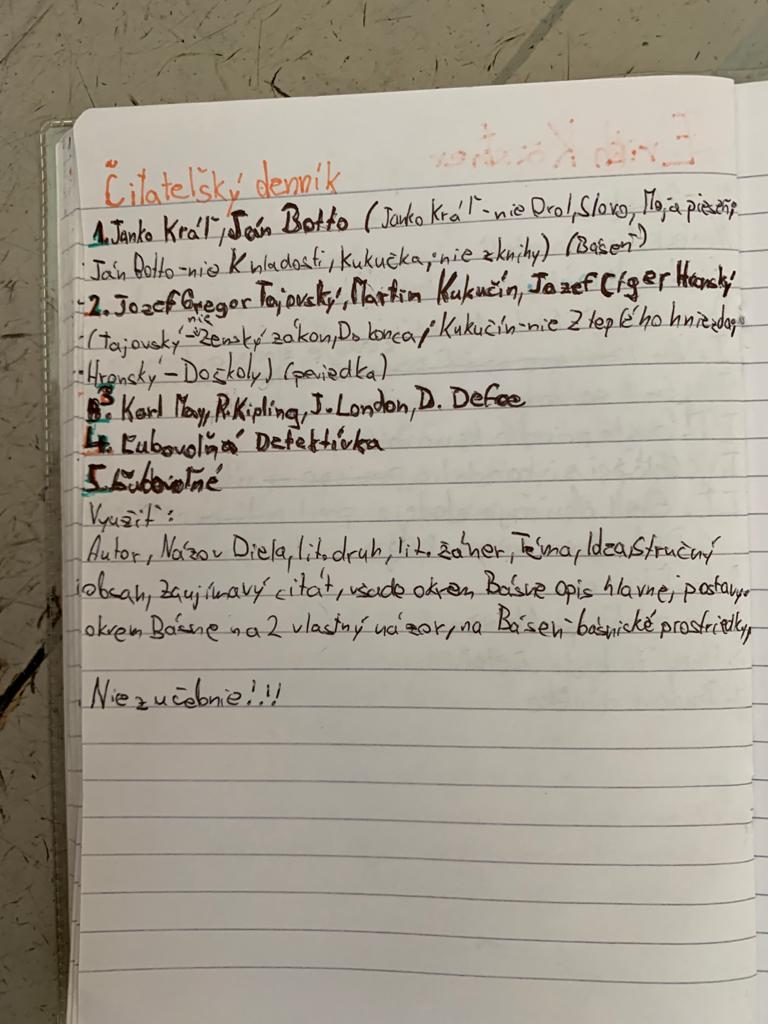 Čitateľský denník
1. Janko Kráľ, Ján Botto (Janko Kráľ - nie Orol, Slovo, Moja pieseň;
Ján Botto - nie K mladosti, Kukučka, nie z knihy) (Báseň)
2. Jozef Gregor Tajovský, Martin Kukučín, Jozef Cíger Hronský
(Tajovský - nie Ženský zákon, Do konca, Kukučín - nie Z teplého hniezda,
Hronský - Do školy) (poviedka)
3. Karl May, R. Kipling, J. London, D. Defoe
4. Ľubovoľná Detektívka
5. Ľubovoľné
Využiť:
Autor, Názov Diela, lit. druh, lit. žáner, Téma, Idea, Stručný
obsah, zaujímavý citát, všade okrem Básne opis hlavnej postavy.
okrem Básne na 2 vlastný názor, na Báseň - básnické prostriedky,
Nie z učebnie!!!